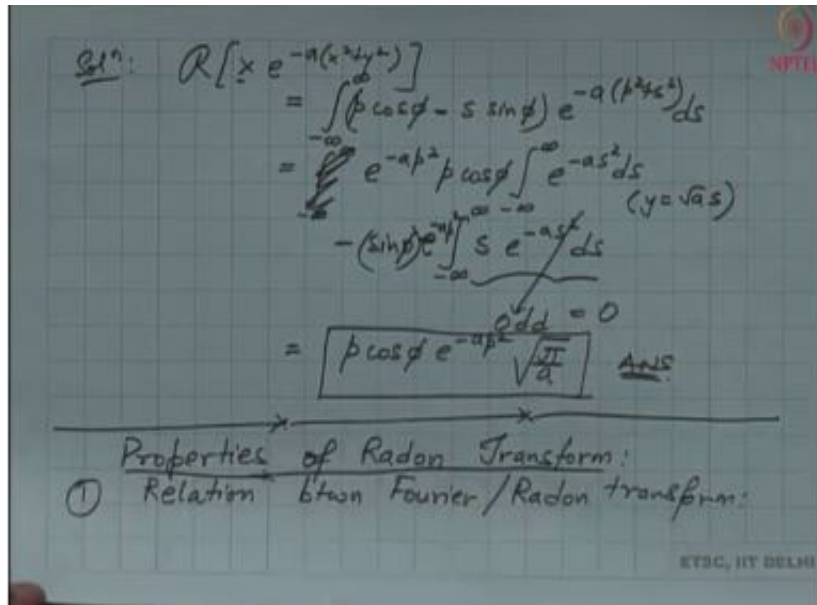 NPTEL
Solⁿ: R[x e^{-a(x²+y²)}]
= ∫_{-∞}^{∞} (p cosφ - s sinφ) e^{-a(p²+s²)} ds
= e^{-ap²} p cosφ ∫_{-∞}^{∞} e^{-as²} ds
(y = √a s)
-(sinφ) e^{-ap²} ∫_{-∞}^{∞} s e^{-as²} ds
Odd = 0
= p cosφ e^{-ap²} √(π/a) ANS
Properties of Radon Transform:
① Relation btwn Fourier/Radon transform:
ETSC, IIT DELHI